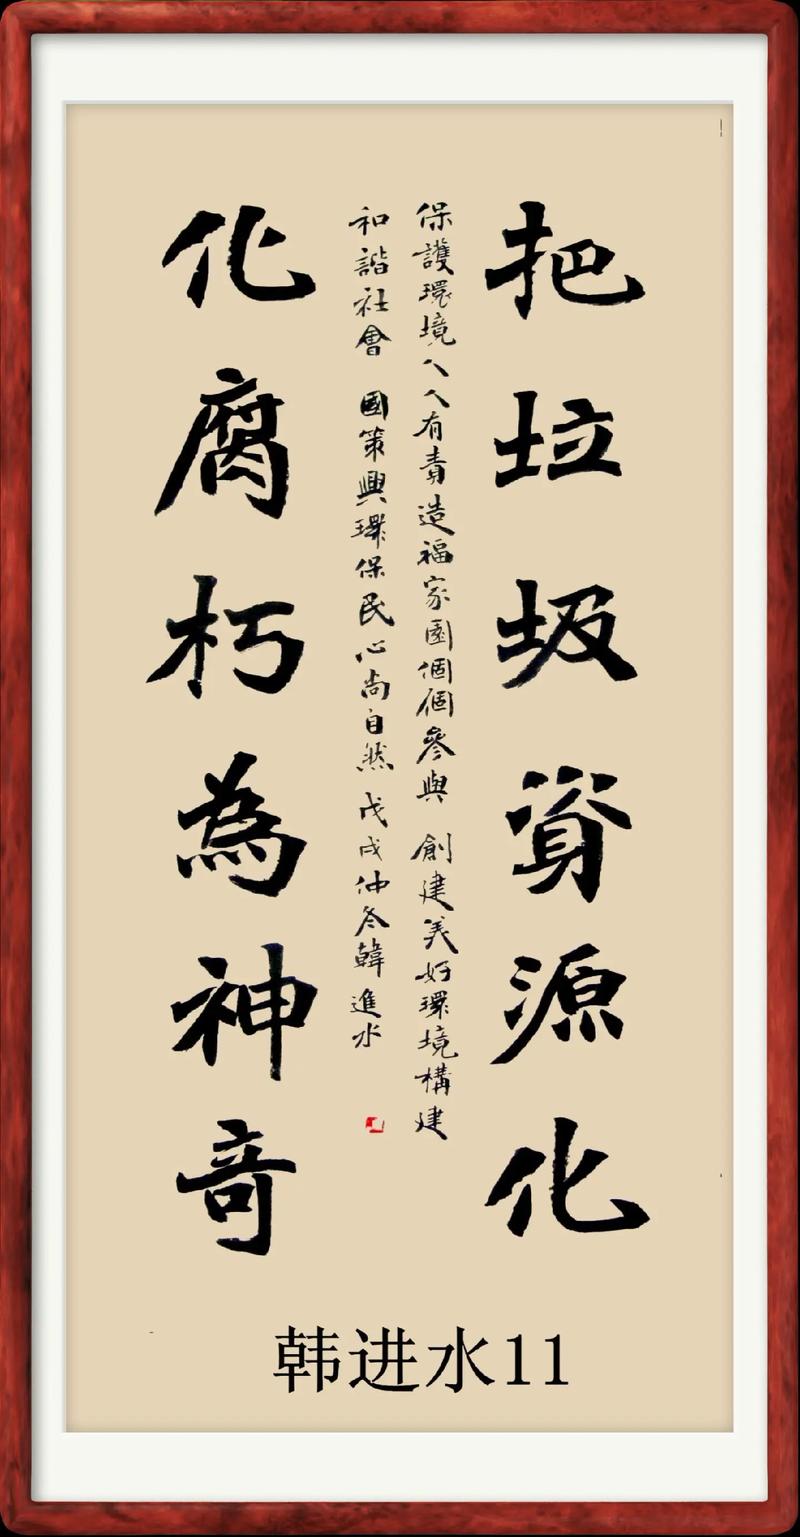 把垃圾資源化
保護環境人人有責造福家園個個參與 創建美好環境構建
和諧社會 國策興環保民心尚自然戊戌仲冬韓進水
化腐朽為神奇
韩进水11